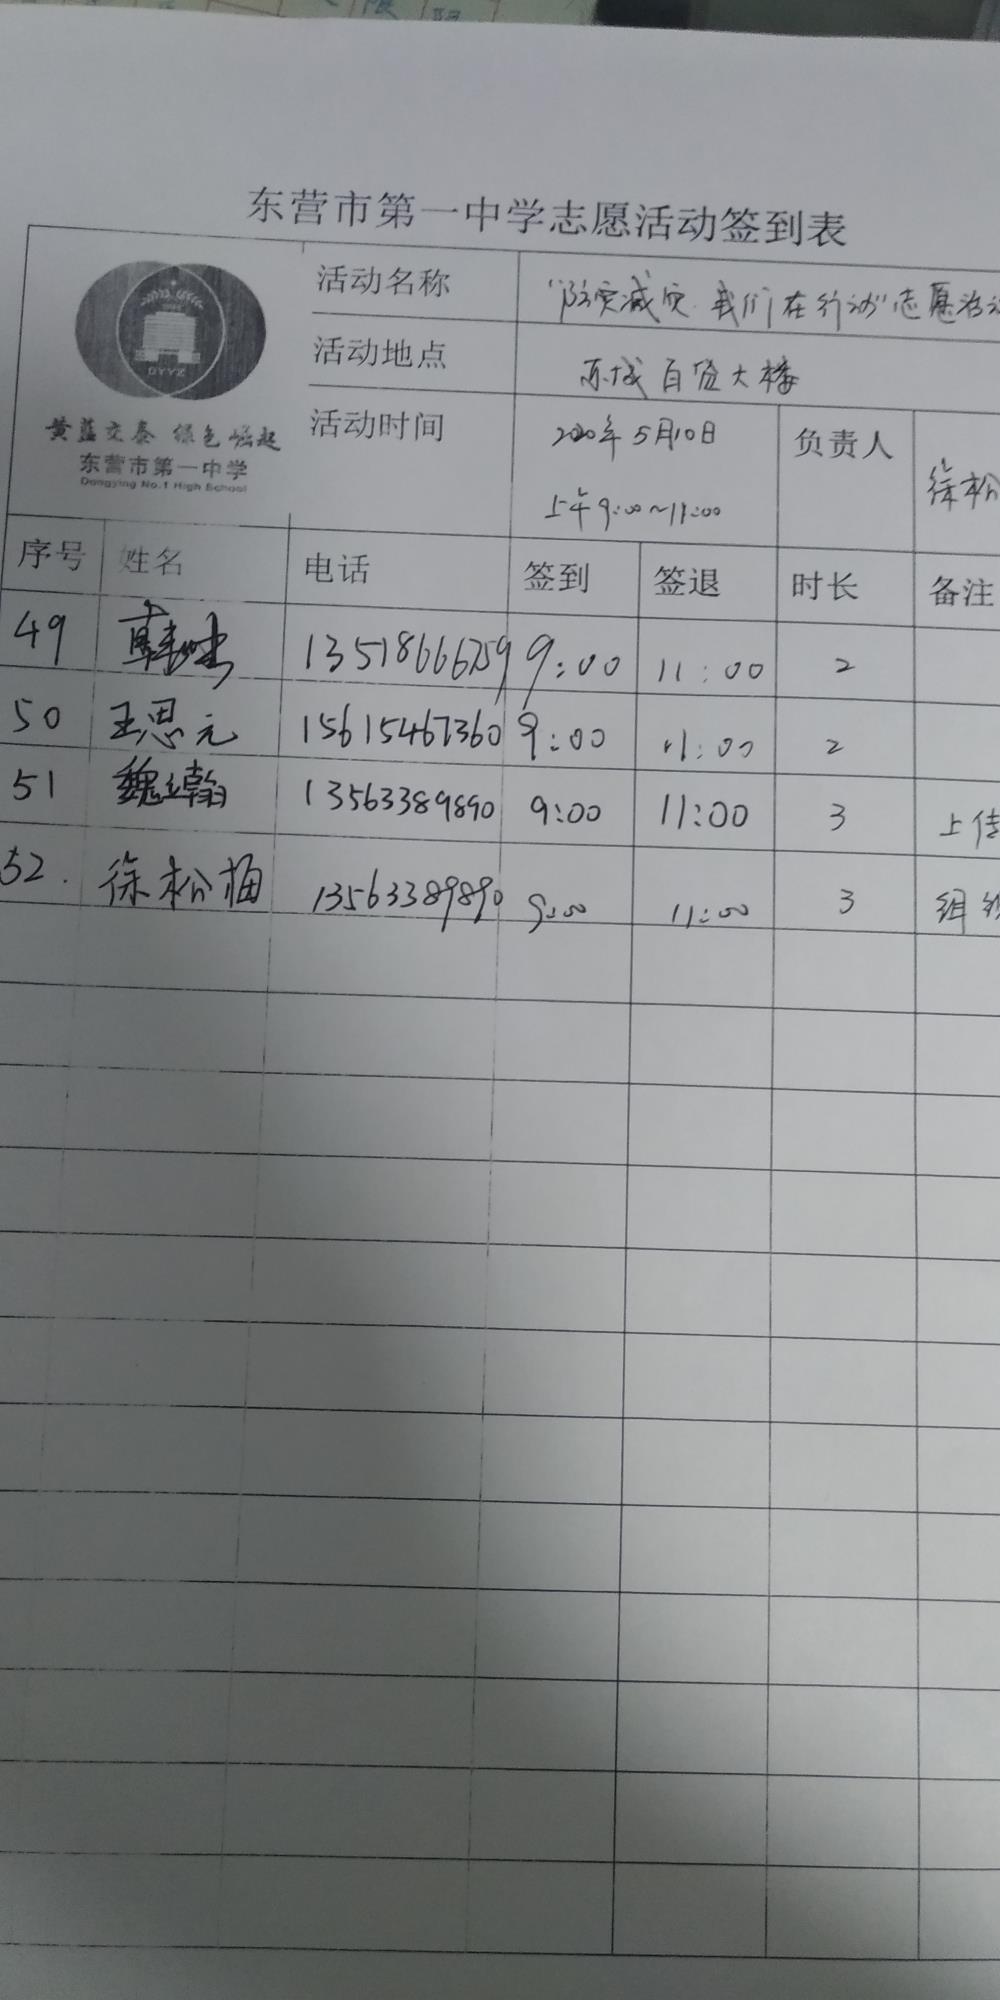 东营市第一中学志愿活动签到表
活动名称 "防灾减灾 我们在行动"志愿活动
活动地点 东城百货大楼
黄蓝交泰 绿色崛起
东营市第一中学
Dongying No.1 High School
DYYZ
活动时间 2020年5月10日 负责人 徐松
上午9:00~11:00
序号 姓名 电话 签到 签退 时长 备注
49 韩 13518666759 9:00 11:00 2
50 王思元 15615467360 9:00 11:00 2
51 魏立翰 13563389890 9:00 11:00 3 上传
52. 徐松梅 13563389890 9:00 11:00 3 组织